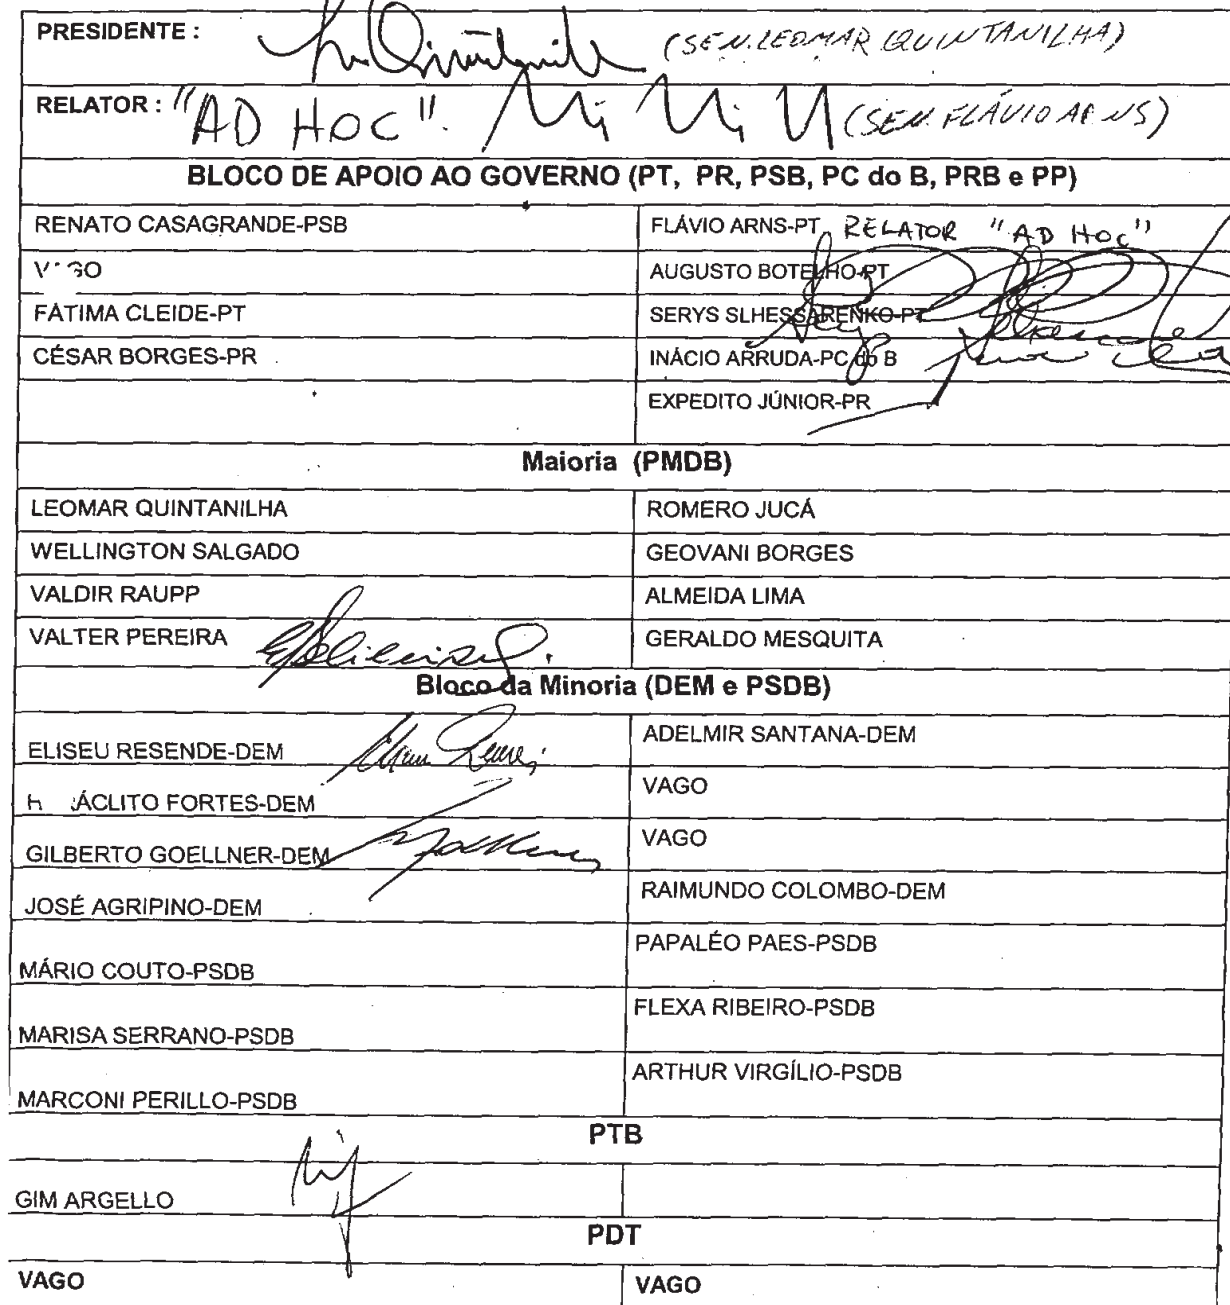 PRESIDENTE : (SEN. LEOMAR QUINTANILHA)
RELATOR : "AD HOC". (SEN. FLÁVIO ARNS)
BLOCO DE APOIO AO GOVERNO (PT, PR, PSB, PC do B, PRB e PP)
RENATO CASAGRANDE-PSB
FLÁVIO ARNS-PT RELATOR "AD HOC"
AUGUSTO BOTELHO-PT
FÁTIMA CLEIDE-PT
SERYS SLHESSARENKO-PT
CÉSAR BORGES-PR
INÁCIO ARRUDA-PC do B
EXPEDITO JÚNIOR-PR
Maioria (PMDB)
LEOMAR QUINTANILHA
ROMERO JUCÁ
WELLINGTON SALGADO
GEOVANI BORGES
VALDIR RAUPP
ALMEIDA LIMA
VALTER PEREIRA
GERALDO MESQUITA
Bloco da Minoria (DEM e PSDB)
ELISEU RESENDE-DEM
ADELMIR SANTANA-DEM
H ÁCLITO FORTES-DEM
VAGO
GILBERTO GOELLNER-DEM
VAGO
JOSÉ AGRIPINO-DEM
RAIMUNDO COLOMBO-DEM
MÁRIO COUTO-PSDB
PAPALÉO PAES-PSDB
MARISA SERRANO-PSDB
FLEXA RIBEIRO-PSDB
MARCONI PERILLO-PSDB
ARTHUR VIRGÍLIO-PSDB
PTB
GIM ARGELLO
PDT
VAGO
VAGO